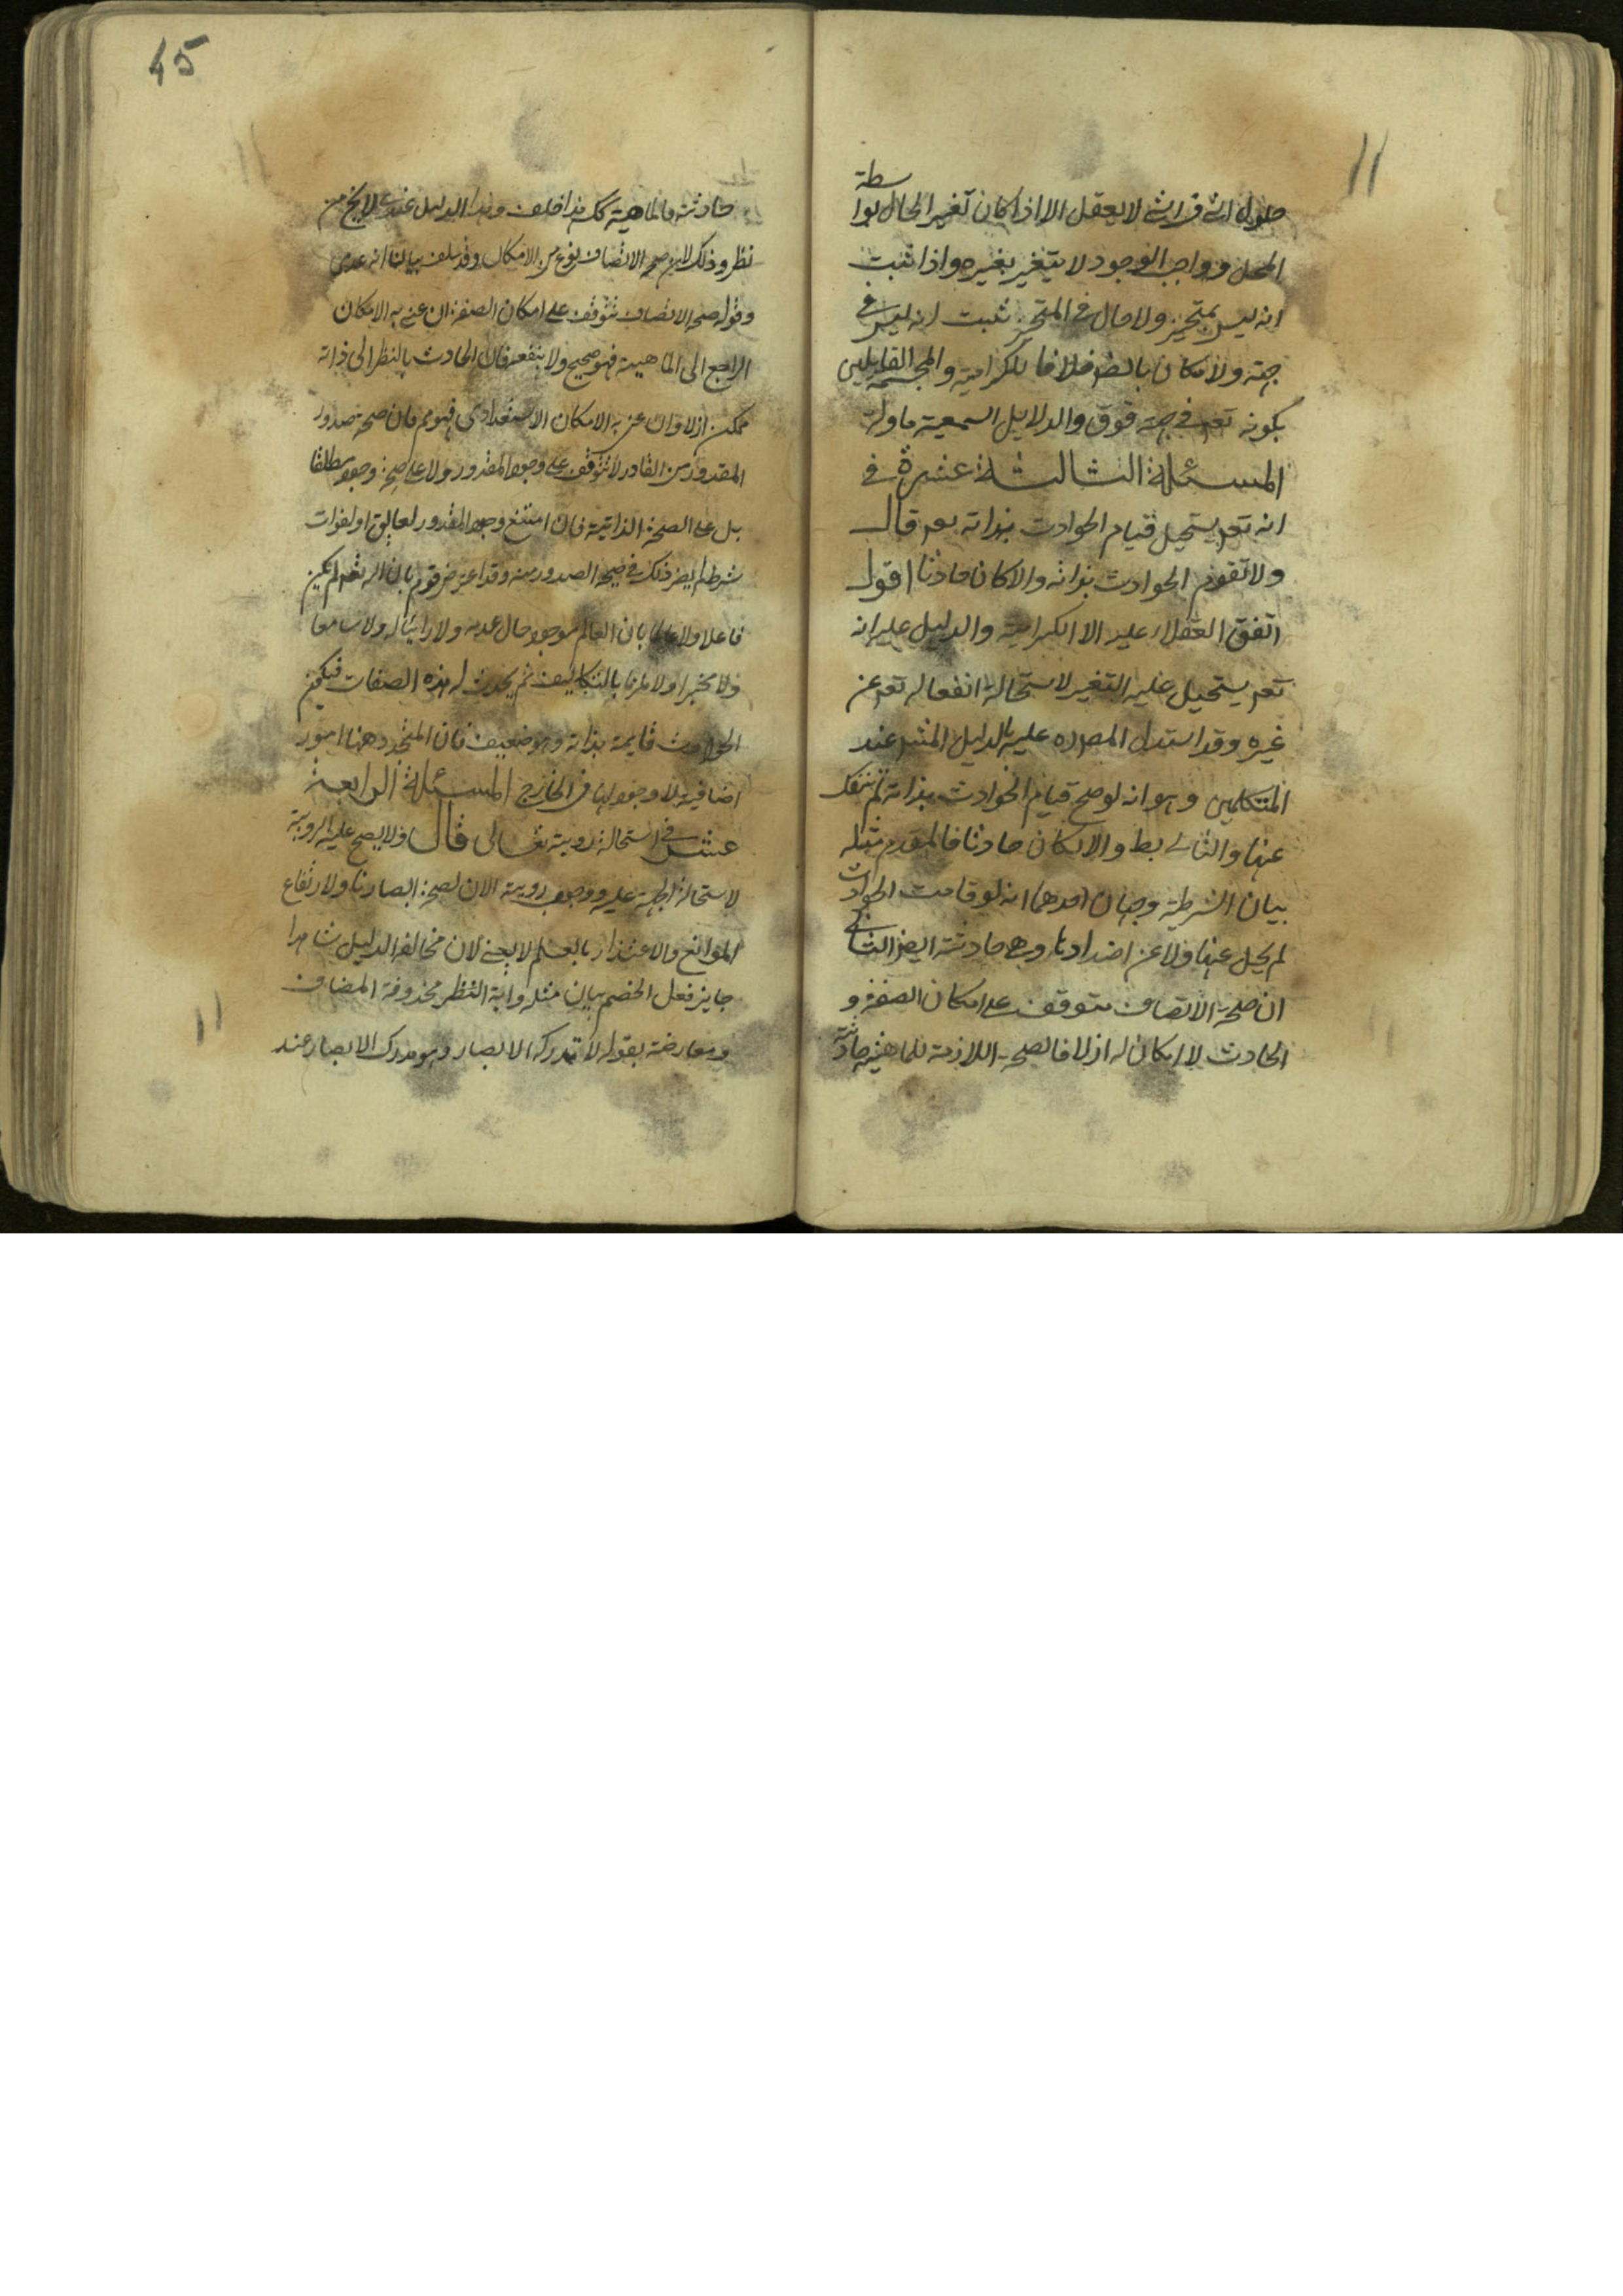 حلول الشئ فى الشئ لا يعقل الا اذا كان تغير الحال بوا
سطة
المحل وواجب الوجود لا يتغير بغيره واذا ثبت
انه ليس بمتحيز ولا حال فى المتحيز ثبت انه ليس فى
جهة ولا مكان بالضر خلافا للكرامية والمجسمة القايلين
بكونه تعه فى جهة فوق والدلايل السمعية ماولة
المسئلة الثالثة عشرة فى
انه تعه يستحيل قيام الحوادث بذاته تعه قال
ولا تقوم الحوادث بذاته والا كان حادثا اقول
اتفق العقلاء عليه الا الكرامية والدليل عليه انه
تعه يستحيل عليه التغير لاستحالة انفعاله تعه عن
غيره وقد استدل المصره عليه بالدليل المشهر عند
المتكلمين وهو انه لو صح قيام الحوادث بذاته لم تنفك
عنها والتالى بط والا لكان حادثا فالمقدم مثله
بيان الشرطية وجهان احدهما انه لو قامت الحوادث
لم يخل عنها ولا عن اضدادها وهى حادثة ايض الثانى
ان صحة الاتصاف متوقف على امكان الصفة و
الحادث لا امكان له ازلا فالصحة اللازمة للماهية حادثة
45
حادثة فالماهية كك هذا خلف وهذا الدليل عندى لا يخ من
نظر وذلك لان صحة الاتصاف نوع من الامكال وقد سلف بيالنا انه عدمى
وقوله صحة الاتصاف تتوقف على امكان الصفة ان عنى به الامكان
الراجع الى الماهية فهو صحيح ولا ينفعه فان الحادث بالنظر الى ذاته
ممكن ازلا وان عنى به الامكان الاستعدادى فهو مم فان صحة صدور
المقدور من القادر لا تتوقف على وجود المقدور ولا على صحة وجوده مطلقا
بل على الصحة الذاتية فان امتنع وجود المقدور لعايق او لفوات
شرط لم يضر ذلك فى صحة الصدور منه وقد اعترض قوم بان الله تعه لم يكن
فاعلا ولا عالما بان العالم موجود حال عدمه ولا رائيا له ولا سامعا
ولا مخبرا ولا ملزما بالتكاليف ثم يحدث له هذه الصفات فيكون
الحوادث قايمة بذاته وهو ضعيف فان المتجدد ههنا امور
اضافية لا وجود لها فى الخارج المسئلة الرابعة
عشر فى استحالة روية تعالى قال ولا يصح عليه الروية
لاستحالة الجهة عليه ووجوب رويته الان لصحة ابصارنا ولارتفاع
الموانع والاعتذار بالعلم لا يجئ لان مخالفة الدليل شاهدا
جايز فعل الخصم بيان مثله واية النظر محذوفة المضاف
ومعارضة بقوله لا تدركه الابصار وهو مدرك الابصار عند